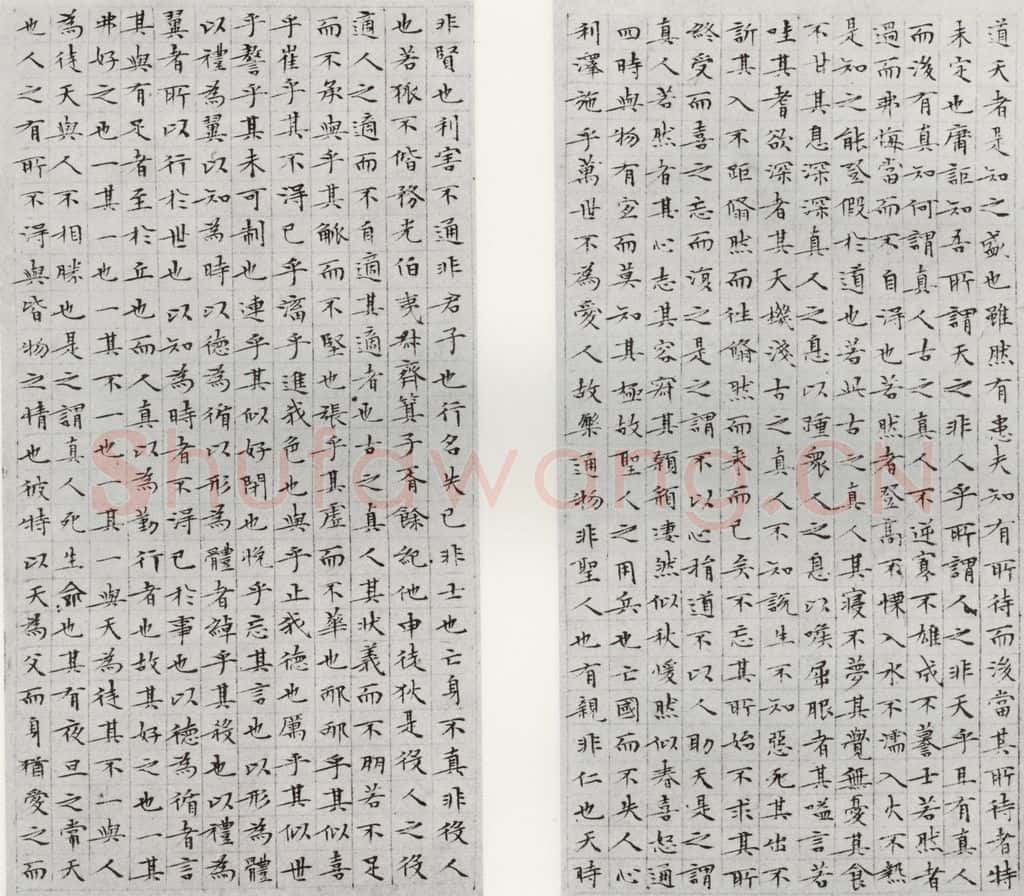 道天者是知之盛也雖然有患夫知有所待而後當其所待者特
未定也庸詎知吾所謂天之非人乎所謂人之非天乎且有真人
而後有真知何謂真人古之真人不逆寡不雄成不謩士若然者
過而弗悔當而不自得也若然者登高不慄入水不濡入火不熱
是知之能登假於道也若此古之真人其寢不夢其覺無憂其食
不甘其息深深真人之息以踵衆人之息以喉屈服者其嗌言若
哇其耆欲深者其天機淺古之真人不知說生不知惡死其出不
訢其入不距翛然而往翛然而来而已矣不忘其所始不求其所
終受而喜之忘而復之是之謂不以心捐道不以人助天是之謂
真人若然者其心志其容寂其顙頯淒然似秋煖然似春喜怒通
四時與物有宜而莫知其極故聖人之用兵也亡國而不失人心
利澤施乎萬世不為愛人故樂通物非聖人也有親非仁也天時
非賢也利害不通非君子也行名失己非士也亡身不真非役人
也若狐不偕務光伯夷叔齊箕子胥餘紀他申徒狄是役人之役
適人之適而不自適其適者也古之真人其狀義而不朋若不足
而不承與乎其觚而不堅也張乎其虛而不華也邴邴乎其似喜
乎崔乎其不得已乎滀乎進我色也與乎止我德也厲乎其似世
乎謷乎其未可制也連乎其似好閉也悗乎忘其言也以形為體
以禮為翼以知為時以德為循以形為體者綽乎其殺也以禮為
翼者所以行於世也以知為時者不得已於事也以德為循者言
其與有足者至於丘也而人真以為勤行者也故其好之也一其
弗好之也一其一也一其不一也一其一與天為徒其不一與人
為徒天與人不相勝也是之謂真人死生命也其有夜旦之常天
也人之有所不得與皆物之情也彼特以天為父而身猶愛之而
Shufawang.CN